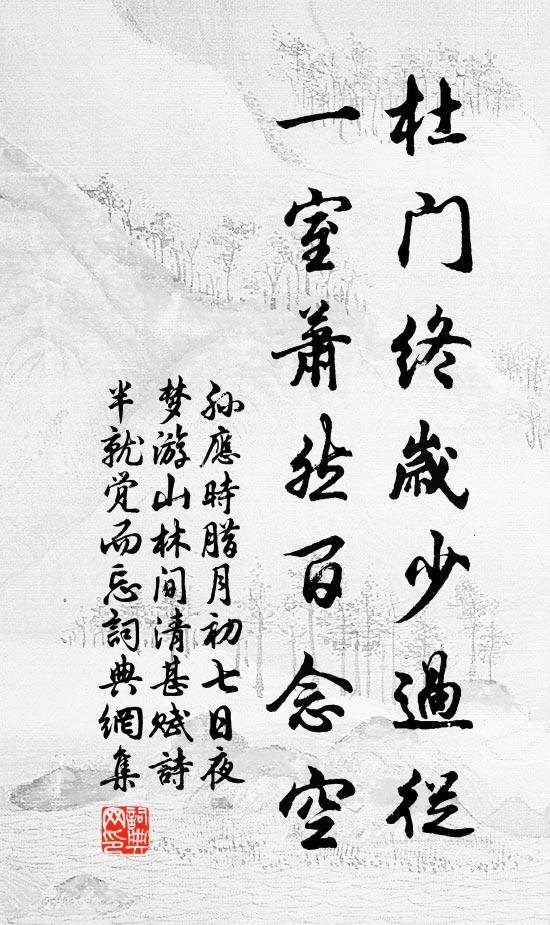 杜门终歳少過從
一室萧然百念空
孙應時腊月初七日夜
梦游山林间清甚赋詩
半就觉而忘詞典網集
詞典网印